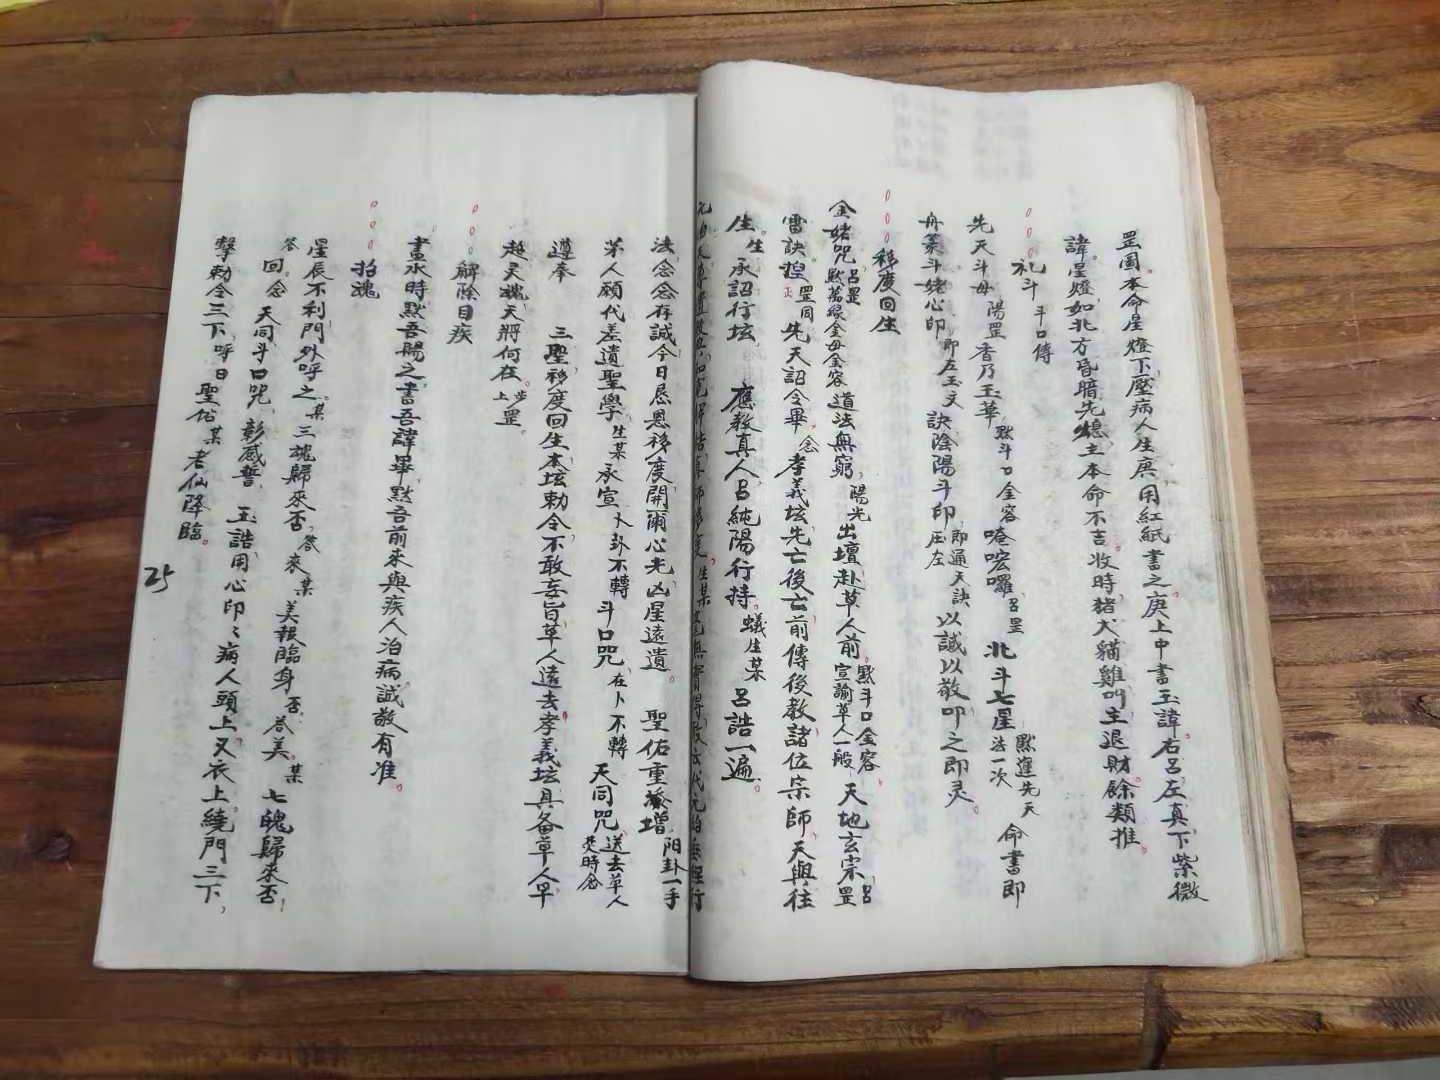 罡圖本命星燈下壓病人生庚用紅紙書之庚上中書玉諱右呂左真下紫微
諱星燈如北方昏暗先熄主本命不吉收時猪犬貓雞叫主退財餘類推
礼斗 斗口傳
先天斗母 陽罡 香乃玉華 默斗口金容 唵㖇囉 呂罡 北斗七星 默運先天法一次 命書即
舟篆斗姥心印 即左玉文 訣陰陽斗印 即通天訣压左 以誠以敬叩之即灵
移度回生
金姥咒 呂罡默萬緣金母金容 道法無窮 陽光 出壇赴草人前 默斗口金容宣諭草人一般 天地玄宗 呂罡
雷訣 罡同 先天詔令畢 念 孝義坛先亡後亡前傳後教諸位宗師天與往
生 生 承詔行坛 應教真人呂純陽行持 蟻生某 呂誥一遍
法念念存誠今日恳恩移度開爾心光凶星遠遣 聖佑重添增 阳卦一手
茅人願代差遣聖學 生某 承宣 卜卦不轉 斗口咒 在卜不轉 天同咒 送去草人焚時念
遵奉 三聖移度回生本坛勅令不敢妄旨草人遠去孝義坛具备草人早
超灵魂天將何在 步上 罡
解除目疾
畫水時默吾賜之書吾諱畢默吾前來與疾人治病誠敬有准
招魂
星辰不利門外呼之 某 三魂歸來否 答 來 某 美報臨身否 答美 某 七魄歸來否
答回 念 天同斗口咒 彰感誓 玉誥用心印 病人頭上又衣上繞門三下
擊勅令三下呼曰聖佑 某 老仙降臨
25